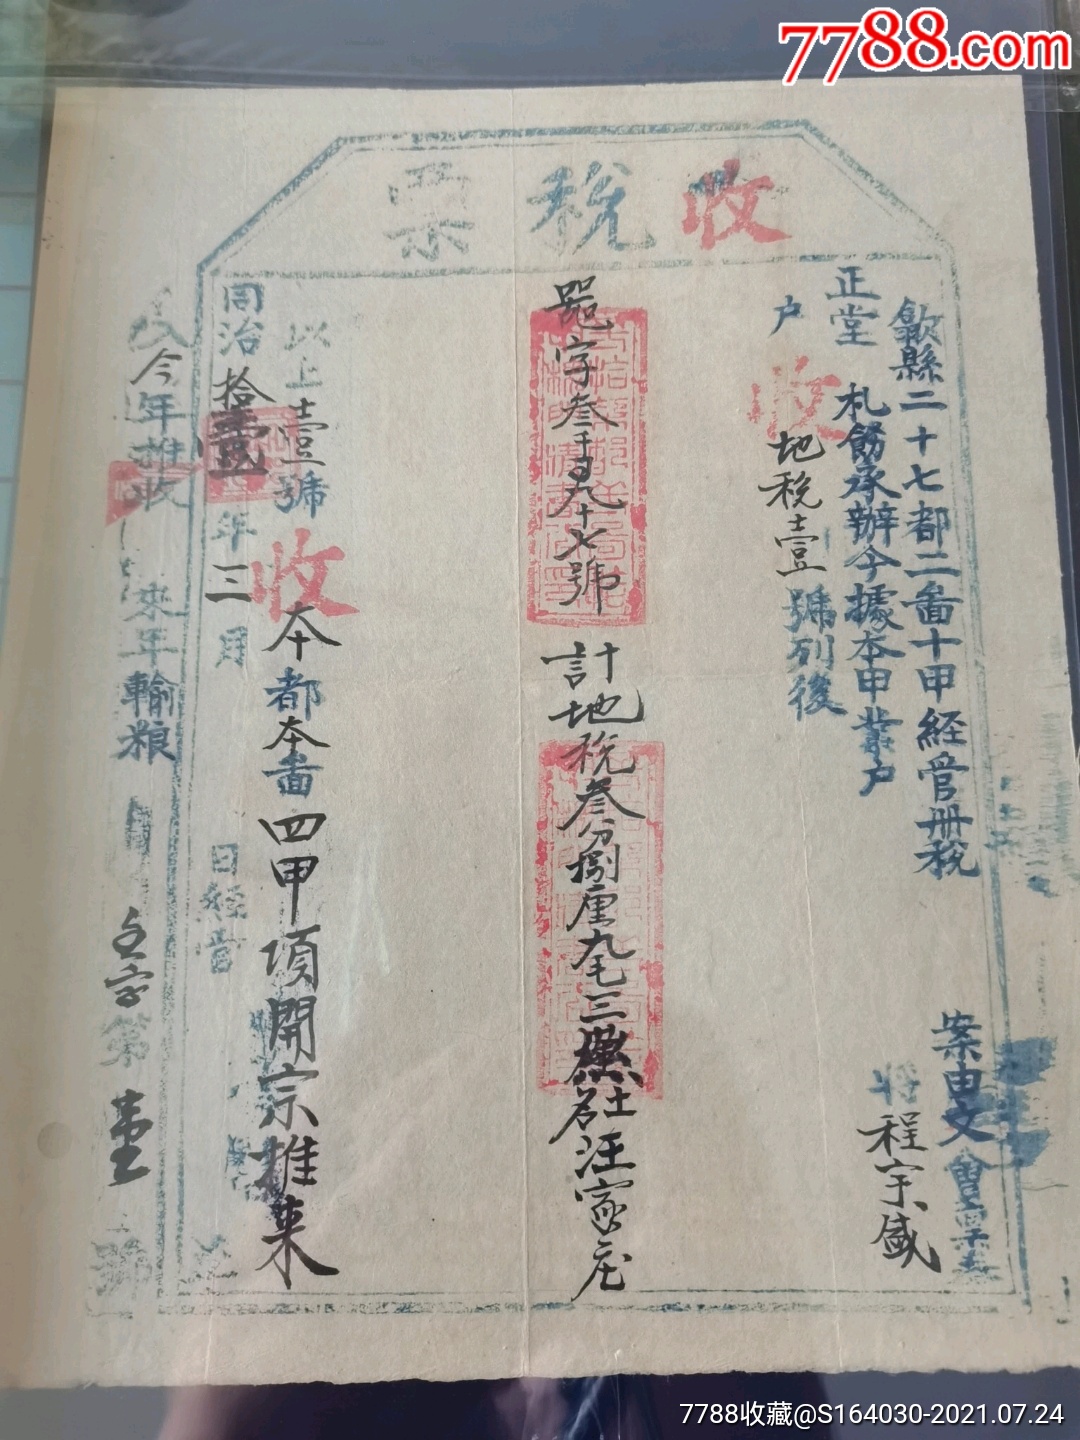 7788.com
收稅票
歙縣二十七都二啚十甲経管册稅
案由文會票
正堂
札飭承辦今據本甲業户
將程宗盛
户收地稅壹號列後
字叁千九十七號
計地稅叁分捌厘九毛三
名土汪家庄
以上壹號收本都本啚四甲項開宗推来
同治拾年三月
日経管
今年推收
来年輸粮
字第壹號
7788收藏@S164030-2021.07.24